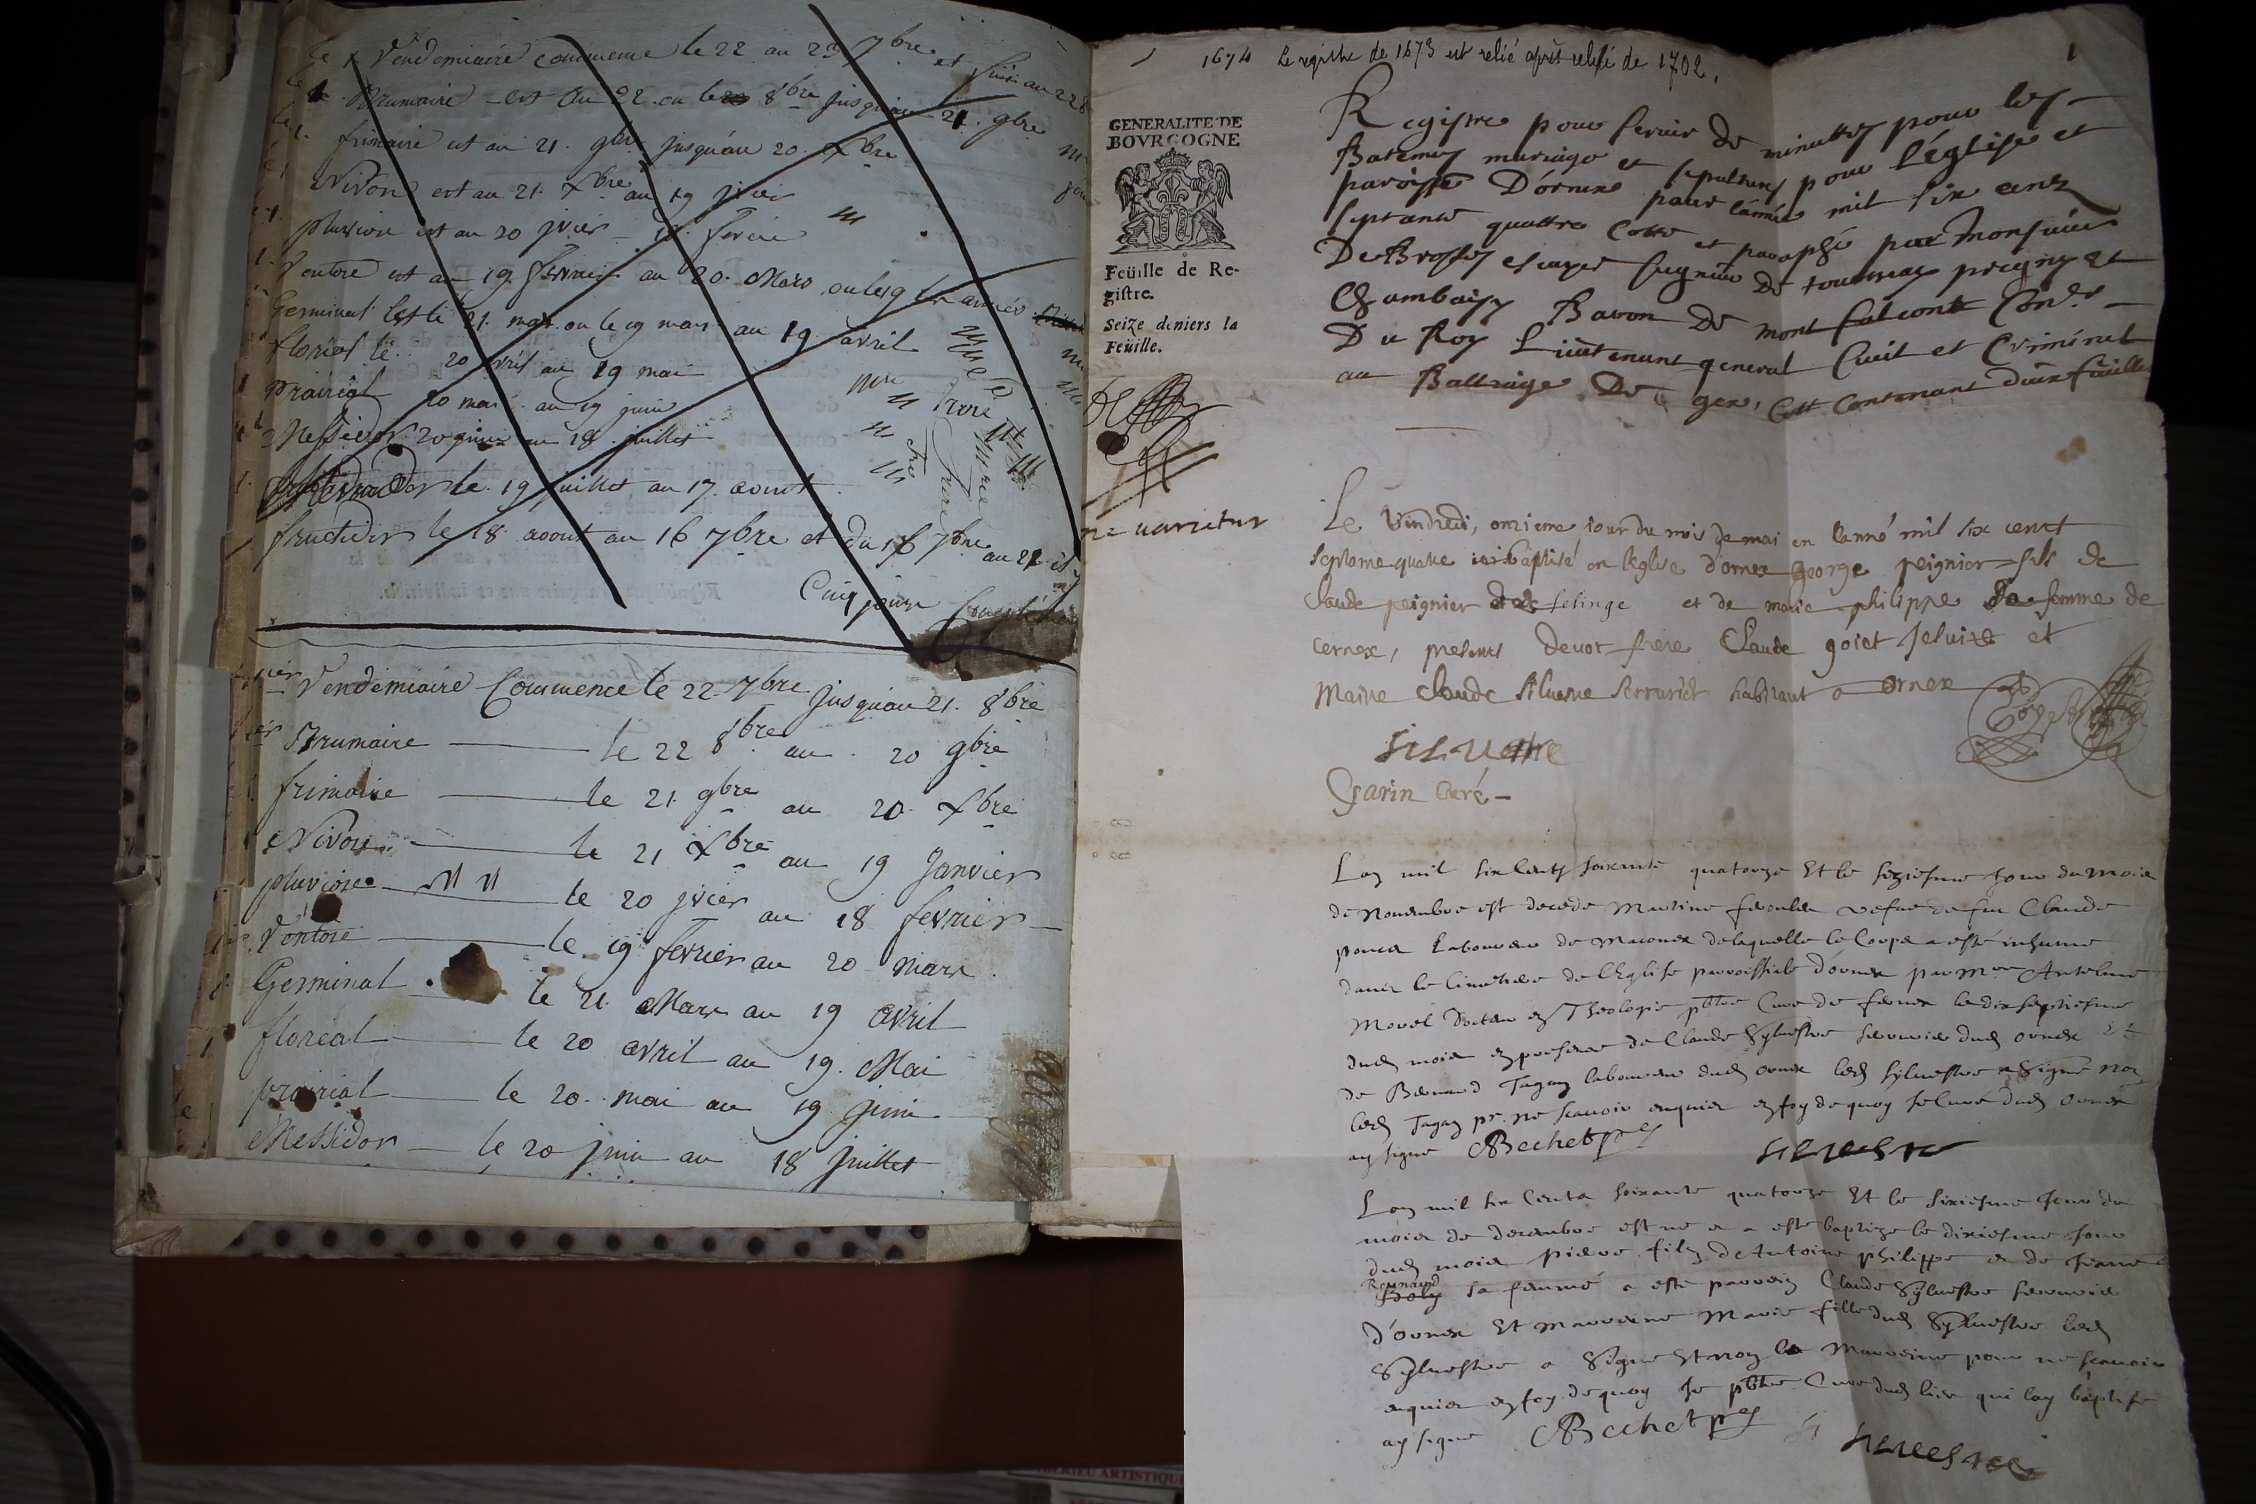 Vendemiaire commence le 22 au 23 7bre et
Brumaire est au 22 ou le 8bre jusqu'au 21. 9bre
frimaire est au 21. 9bre jusqu'au 20. Xbre
Nivose est au 21. Xbre au 19 jvier
pluviose est au 20 jvier
Ventose est au 19. fevrier au 20. Mars ou
Germinal 21. mars ou le 19 mars au 19 avril
floréal le 20 avril au 19 mai
Prairial 20 mai au 19 juin
Messidor 20 juin au 18 juillet
le 19 juillet au 17. aoust
fructidor le 18 aoust au 16 7bre et du 7bre au
Cinq jours
Vendémiaire Commence le 22 7bre jusqu'au 21. 8bre
Brumaire le 22 8bre au 20 9bre
frimaire le 21. 9bre au 20 Xbre
Nivose le 21 Xbre au 19 Janvier
pluviose le 20 jvier au 18 fevrier
Ventose le 19 fevrier au 20 mars
Germinal le 21 Mars au 19 avril
floréal le 20 avril au 19. Mai
prairial le 20 mai au 19 juin
Messidor le 20 juin au 18 juillet
1674 Le registre de 1673 est relié après celui de 1702.
1
GENERALITE DE
BOVRGOGNE
Feüille de Re-
gistre.
Seize deniers la
Feüille.
ne varietur
Registre pour servir de minuttes pour les
Batemes mariage et sepultures pour l'église et
paroisse D'ornex pour l'année mil six cents
septante quattre Cotté et paraphé par Monsieur
De Brosses escuyer seigneur de tournay pregny et
Chambaisy Baron De montfalcont Con.er
Du Roy Lieutenant general Civil et Criminel
au Balliage De gex, Cott Contenant deux fueilles
Le Vendredi, onzieme jour du mois de mai en l'anné mil six cent
septante quatre baptisé en l'eglise d'ornex george peignier fils de
claude peignier et de marie philippe sa femme de
cernex, presents devot frere Claude goiet Jesuite et
Maitre claude silvestre serrurier habitant a ornex
silvestre
Garin Curé
Lan mil six cents soixante quatorze Et le seziesme jour du mois
de Novembre est decede Martine vefve de feu Claude
laboureur de Maconex de laquelle le Corps a esté inhumé
dans le Cimetiere de l'Eglise parroissiale d'ornex par Mre Antelme
Morel Docteur en Theologie pbtre Cure de fernex le dixseptiesme
dud mois en presence de Claude Sylvestre serrurier dud ornex Et
de Bernard Tagan laboureur dud ornex led sylvestre a signe non
led Tagan pr. ne scavoir enquis en foy de quoy je Cure dud ornex
ay signe Bechet
silvestre
Lan mil six Cents soixante quatorze Et le sixiesme jour du
mois de decembre est ne et a este baptize le dixiesme jour
dud mois pierre filz de Antoine philippe et de
Reynaud
sa femme a este parrein Claude Sylvestre serrurier
d'ornex Et Marreine Marie fille dud Sylvestre led
Sylvestre a signe Et non la Marreine pour ne scavoir
enquise en foy de quoy je pbtre Cure dud lieu qui lay baptise
ay signe Bechet
silvestre